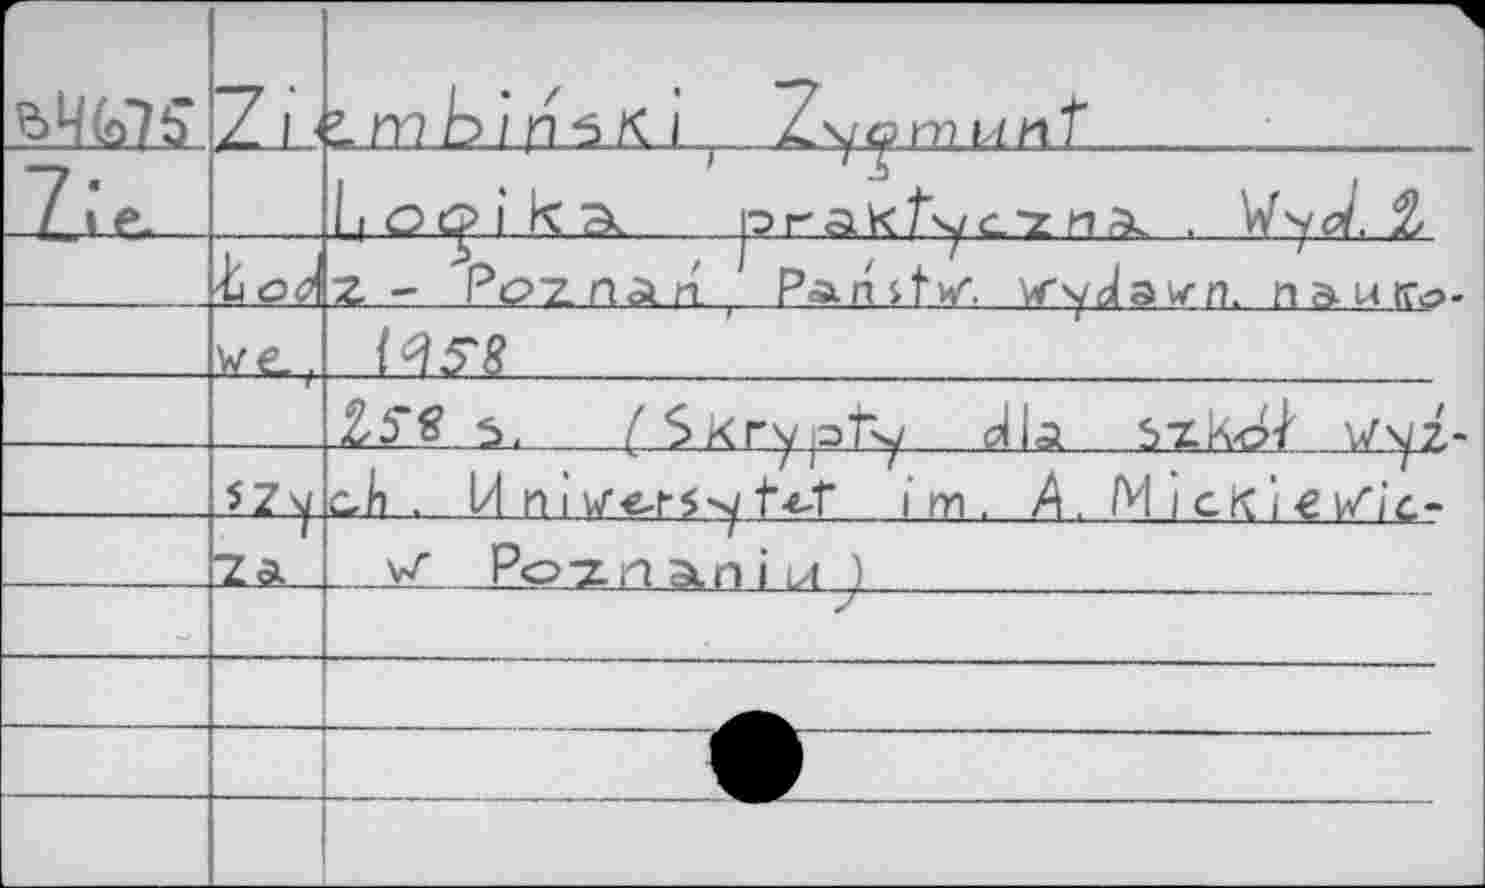 Ziembiński, Zygmunt
Zie Logika praktyczna. Wyd. 2
Łódz - Poznań, Państw. wydawn. nauko-
we, 1958
258 s. (Skrypty dla szkół wyż-
szych. Uniwersytet im. A. Mickiewic-
za w Poznaniu)